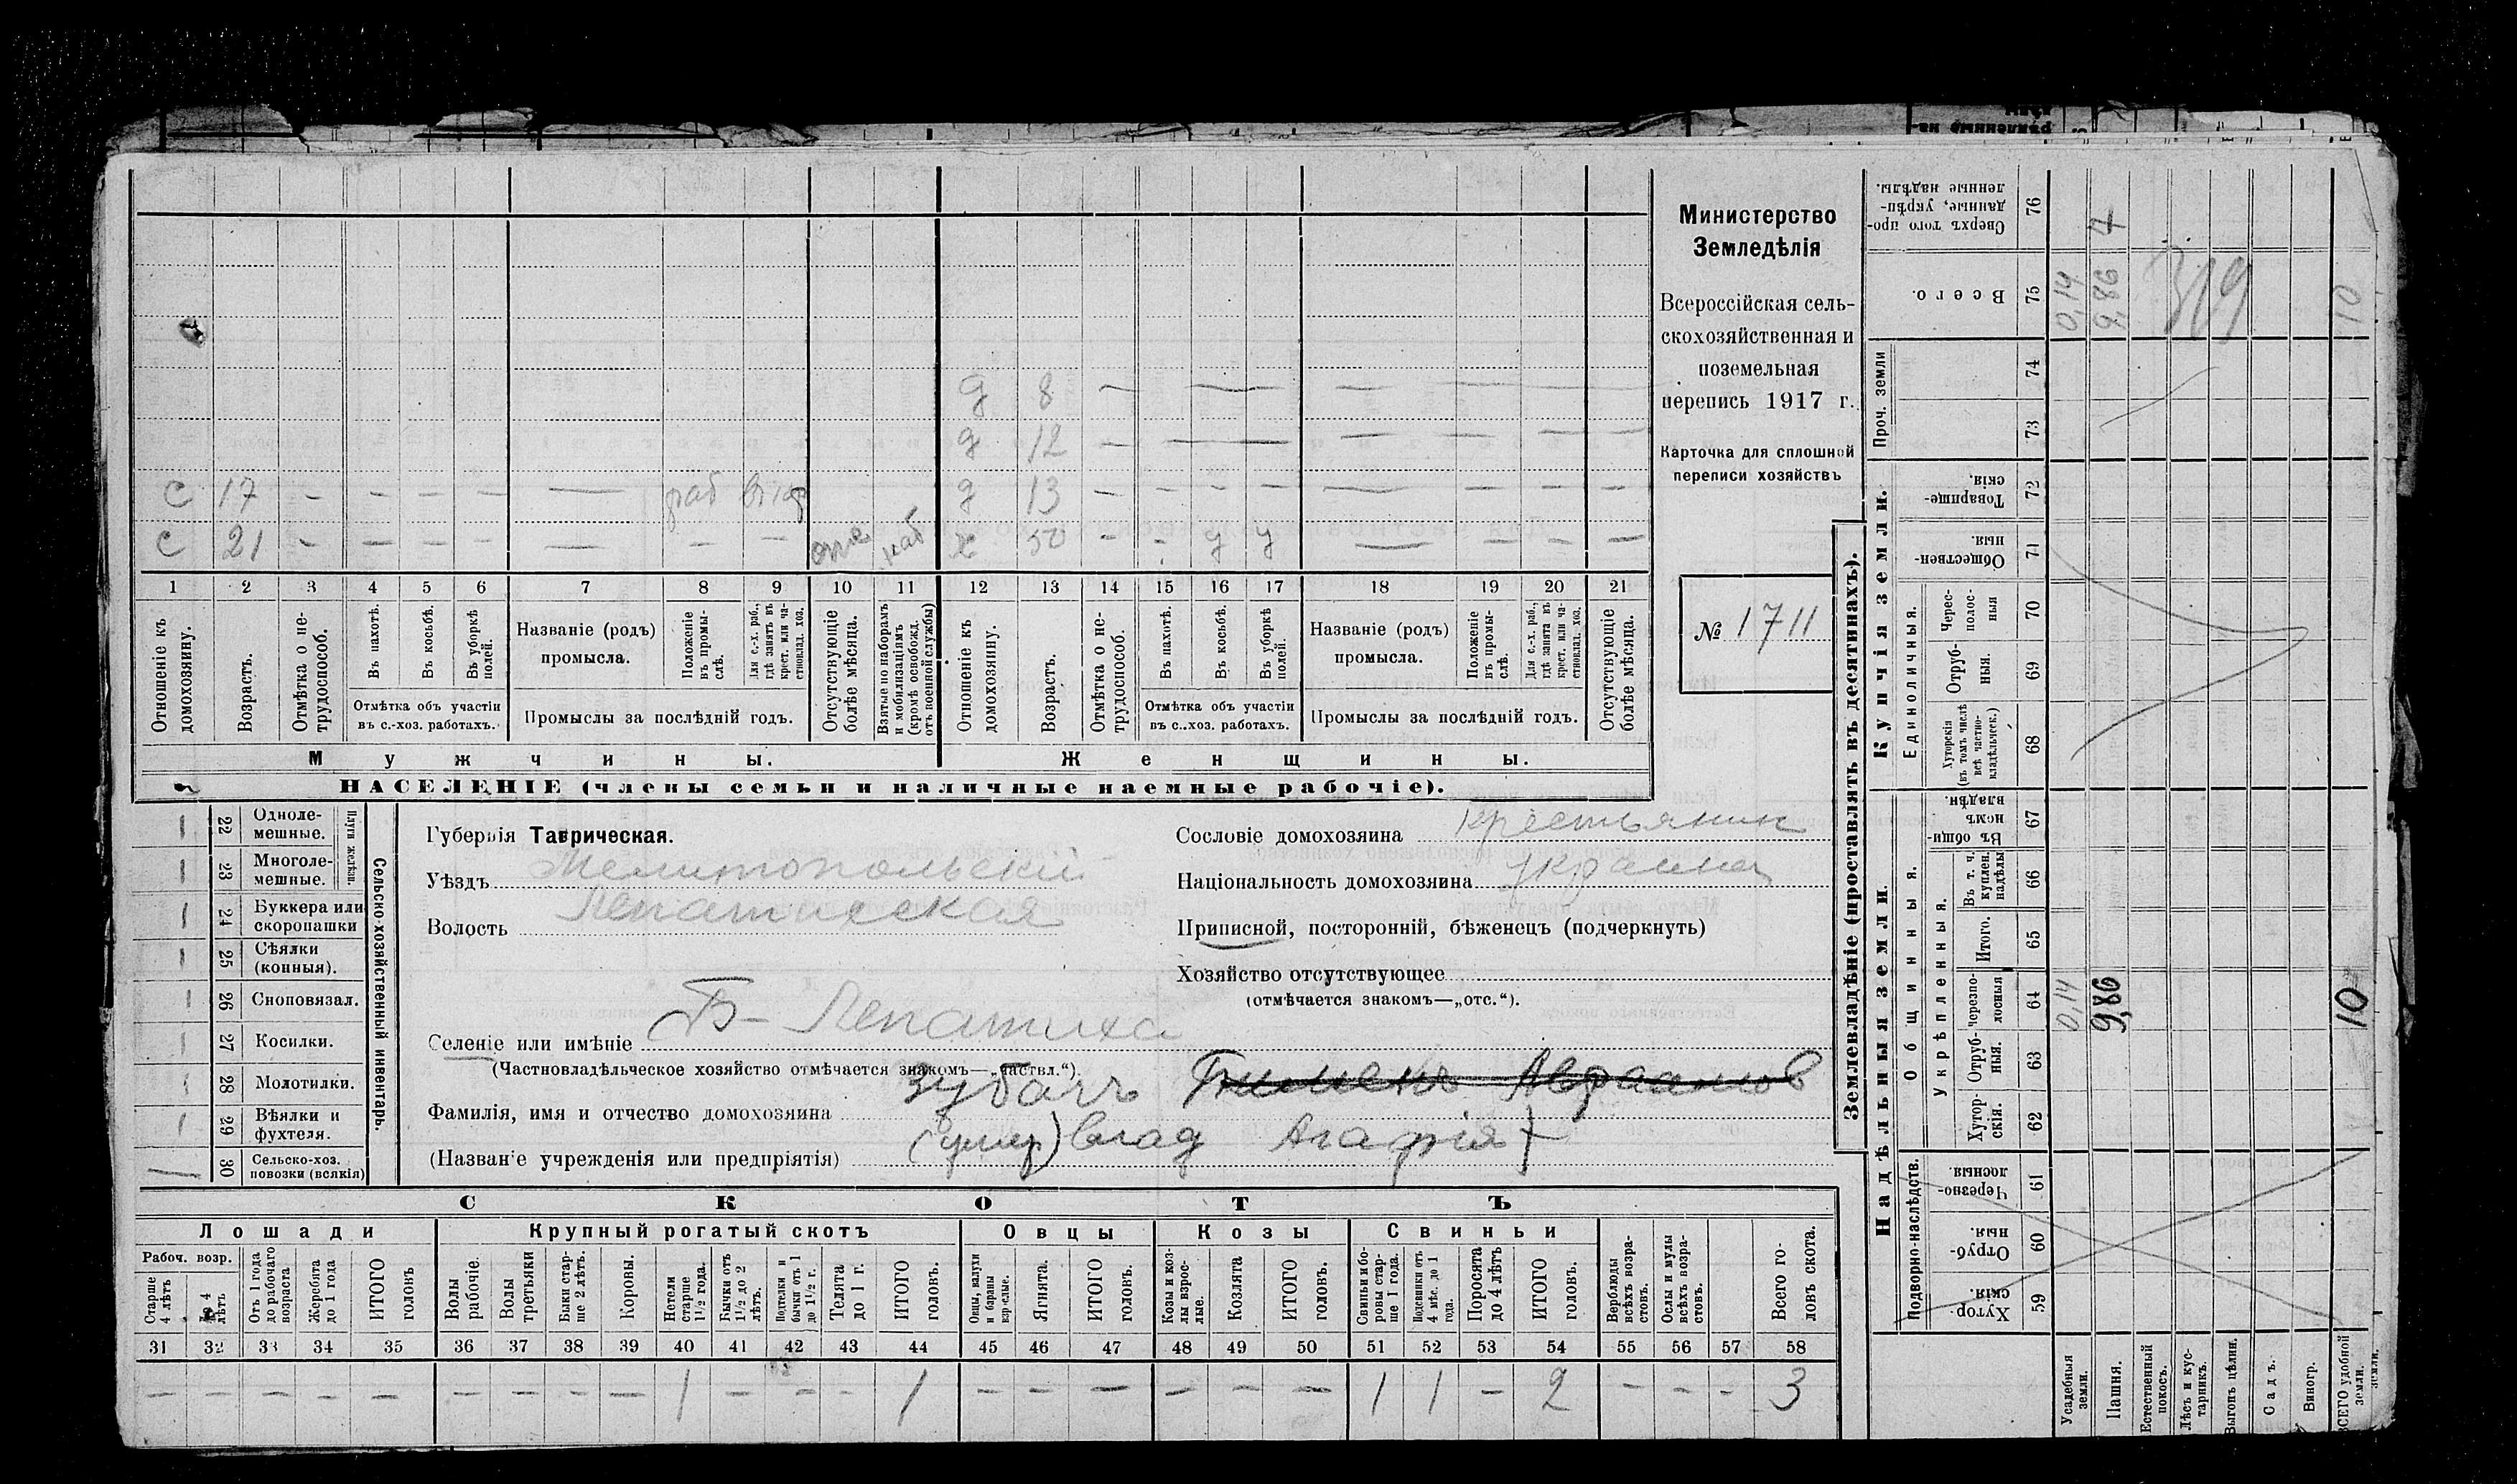 д 8 — — — — — —
д 12 — — — — — —
с 17 — — — — — раб д 13 — — — — — — — —
с 21 — — — — — — — х 50 — — у у — — — —
1 2 3 4 5 6 7 8 9 10 11 12 13 14 15 16 17 18 19 20 21
Отношеніе къ домохозяину.
Возрастъ.
Отмѣтка о не-трудоспособ.
Въ пахотѣ.
Въ косьбѣ.
Въ уборкѣ полей.
Отмѣтка объ участіи
въ с.-хоз. работахъ.
Названіе (родъ)
промысла.
Положеніе въ промы-слѣ.
Для с.-х. раб., гдѣ занятъ въ крест. или ча-стновлад. хоз.
Промыслы за послѣдній годъ.
Отсутствующіе болѣе мѣсяца.
Взятые по наборамъ и мобилизаціямъ (кромѣ освобожд. отъ военной службы)
Отношеніе къ домохозяину.
Возрастъ.
Отмѣтка о не-трудоспособ.
Въ пахотѣ.
Въ косьбѣ.
Въ уборкѣ полей.
Отмѣтка объ участіи
въ с..хоз. работахъ.
Названіе (родъ)
промысла.
Положеніе въ промы-слѣ.
Для с.-х. раб., гдѣ занята въ крест. или ча-стновлад. хоз.
Промыслы за послѣдній годъ.
Отсутствующіе болѣе мѣсяца.
Мужчины. Женщины.
НАСЕЛЕНІЕ (члены семьи и наличные наемные рабочіе).
Министерство
Земледѣлія
Всероссійская сель-
скохозяйственная и
поземельная
перепись 1917 г.
Карточка для сплошной
переписи хозяйствъ
№ 1711
Сельско-хозяйственный инвентарь.
Плуги желѣзн.
22 Одноле-мешные.
23 Многоле-мешные.
24 Буккера или скоропашки
25 Сѣялки (конныя).
26 Сноповязал.
27 Косилки.
28 Молотилки.
29 Вѣялки и фухтеля.
30 Сельско-хоз. повозки (всякія)
Губернія Таврическая.
Уѣздъ Мелитопольскій
Волость Лепатихская
Селеніе или имѣніе Б- Лепатиха
(Частновладѣльческое хозяйство отмѣчается знакомъ—„частвл.“).
Фамилія, имя и отчество домохозяина Зубачъ Авраамов
(Названіе учрежденія или предпріятія) (умер) влад Агафія
Сословіе домохозяина крестьянин
Національность домохозяина украинец
Приписной, посторонній, бѣженецъ (подчеркнуть)
Хозяйство отсутствующее
(отмѣчается знакомъ—„отс.“).
СКОТЪ
Лошади Крупный рогатый скотъ Овцы Козы Свиньи
Рабоч. возр.
Старше 4 лѣтъ
До 4 лѣтъ
Отъ 1 года до рабочаго возраста
Жеребята до 1 года
ИТОГО головъ
Волы рабочіе.
Волы третьяки
Быки стар-ше 2 лѣтъ.
Коровы.
Нетели старше 1½ года.
Бычки отъ 1½ до 2 лѣтъ.
Подтелки и бычки отъ 1 до 1½ г.
Телята до 1 г.
ИТОГО головъ.
Овцы, валухи и бараны взрослые.
Ягнята.
ИТОГО головъ.
Козы и коз-лы взрос-лые.
Козлята
ИТОГО головъ.
Свиньи и бо-ровы стар-ше 1 года.
Подсвинки отъ 4 мѣс. до 1 года.
Поросята до 4 лѣтъ
ИТОГО головъ.
Верблюды всѣхъ возра-стовъ.
Ослы и мулы всѣхъ возра-стовъ.
Всего го-ловъ скота.
31 32 33 34 35 36 37 38 39 40 41 42 43 44 45 46 47 48 49 50 51 52 53 54 55 56 57 58
— — — — — — — — — 1 — — — 1 — — — — — — 1 1 — 2 — — — 3
Землевладѣніе (проставлять въ десятинахъ).
Купчія земли.
Надѣльныя земли.
Сверхъ того про-данные, укрѣп-ленные надѣлы. 76 4
Всего. 75 0,14 9,86 319 10
Проч. земли 74
73
Товарище-скія. 72
Обществен-ныя. 71
Единоличныя.
Черес-полос-ныя 70
Отруб-ныя. 69
Хуторскія (въ томъ числѣ всѣ частно-владѣльческ.) 68
Общинныя.
Въ общи-немъ владѣн. 67
Укрѣпленныя.
Въ т. ч. куплен. надѣлы 66
Итого. 65
Черезпо-лосныя 64 0,14 9,86 10
Отруб-ныя. 63
Хутор-скія. 62
Подворно-наслѣдств.
Черезпо-лосныя 61
Отруб-ныя. 60
Хутор-скія. 59
Усадебныя земли.
Пашня.
Естественный покосъ.
Лѣсъ и кус-тарникъ.
Выгонъ цѣлин.
Садъ.
Виногр.
ВСЕГО удобной земли.
земли.